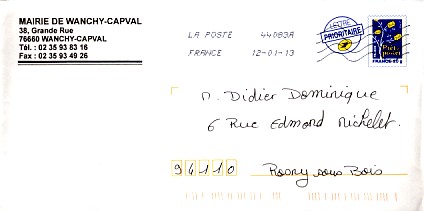 MAIRIE DE WANCHY-CAPVAL
38, Grande Rue
76660 WANCHY-CAPVAL
Tél. : 02 35 93 83 16
Fax : 02 35 93 49 26
LA POSTE 44083A
FRANCE 12-01-13
LETTRE
PRIORITAIRE
FRANCE
M. Didier Dominique
6 Rue Edmond Michelet.
94110
Rosny sous Bois